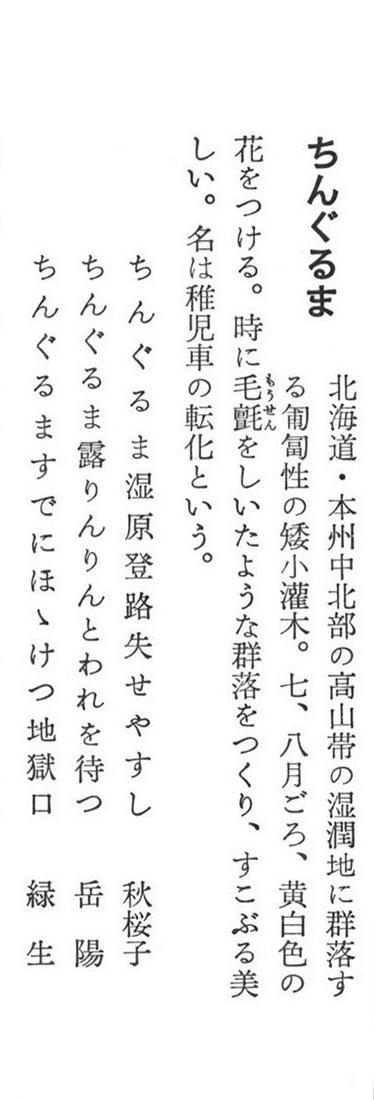 ちんぐるま
北海道・本州中北部の高山帯の湿潤地に群落す
る匍匐性の矮小灌木。七、八月ごろ、黄白色の
花をつける。時に毛氈をしいたような群落をつくり、すこぶる美
もうせん
しい。名は稚児車の転化という。
ちんぐるま湿原登路失せやすし 秋桜子
ちんぐるま露りんりんとわれを待つ 岳陽
ちんぐるますでにほゝけつ地獄口 緑生